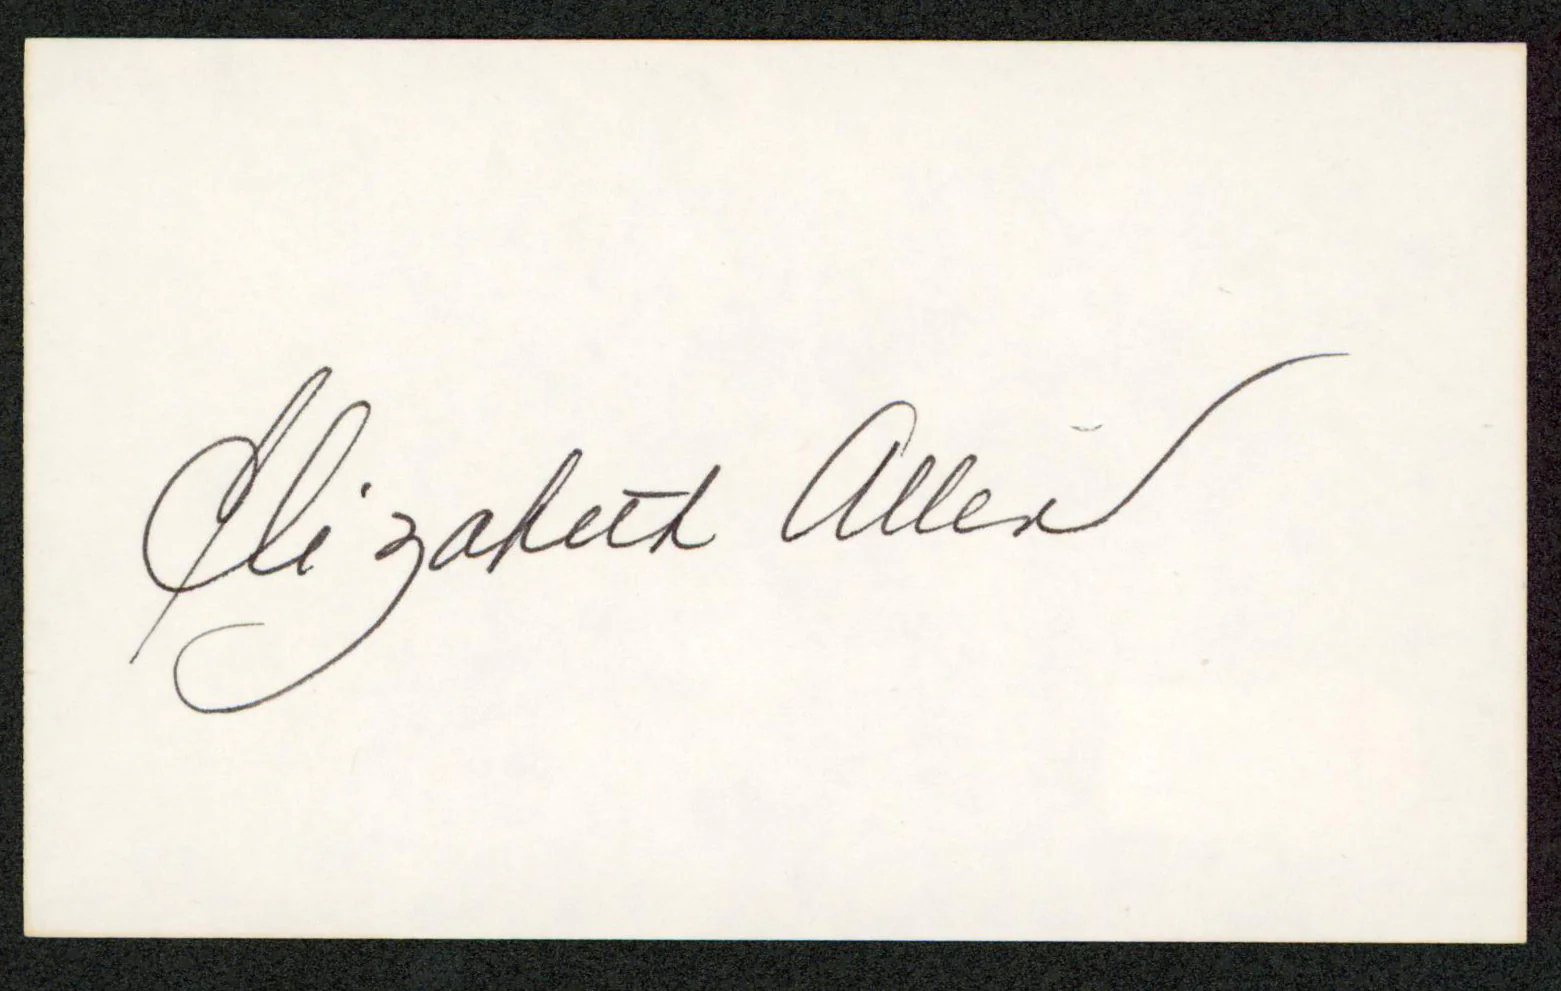 Elizabeth Allen